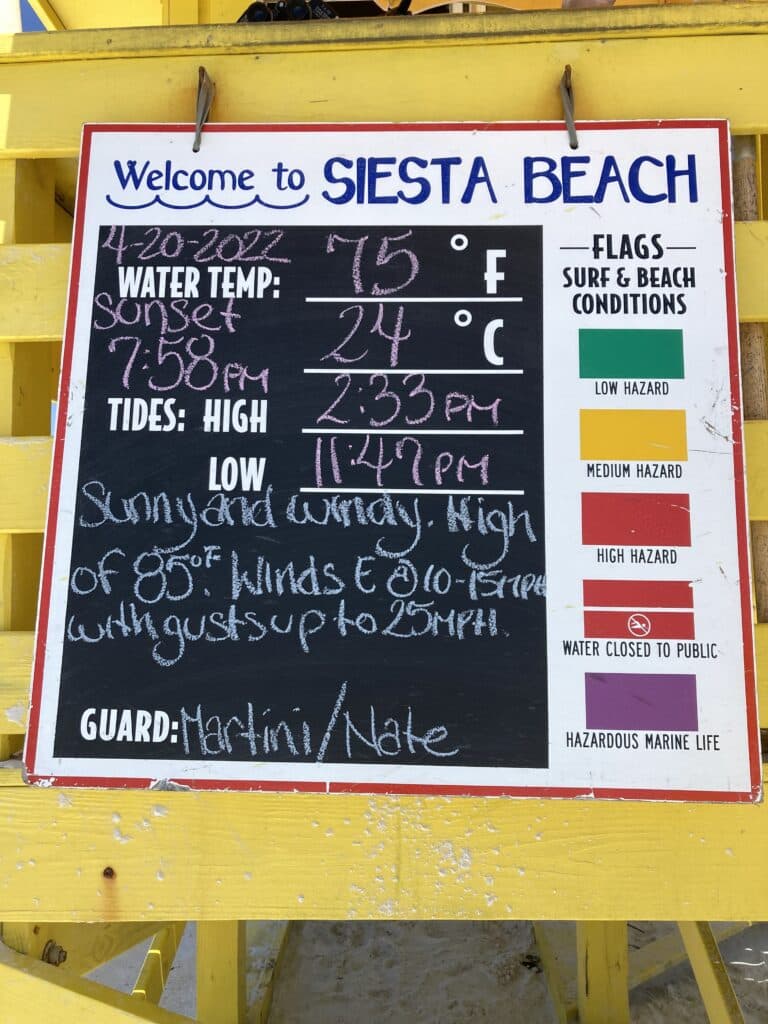 Welcome to SIESTA BEACH
4-20-2022
WATER TEMP: 75 °F
sunset
24 °C
7:58 PM
TIDES: HIGH 2:33 PM
LOW 11:47 PM
Sunny and windy. High
of 85°F. Winds E @ 10-15 MPH
with gusts up to 25 MPH.
GUARD: Martini/Nate
FLAGS
SURF & BEACH
CONDITIONS
LOW HAZARD
MEDIUM HAZARD
HIGH HAZARD
WATER CLOSED TO PUBLIC
HAZARDOUS MARINE LIFE